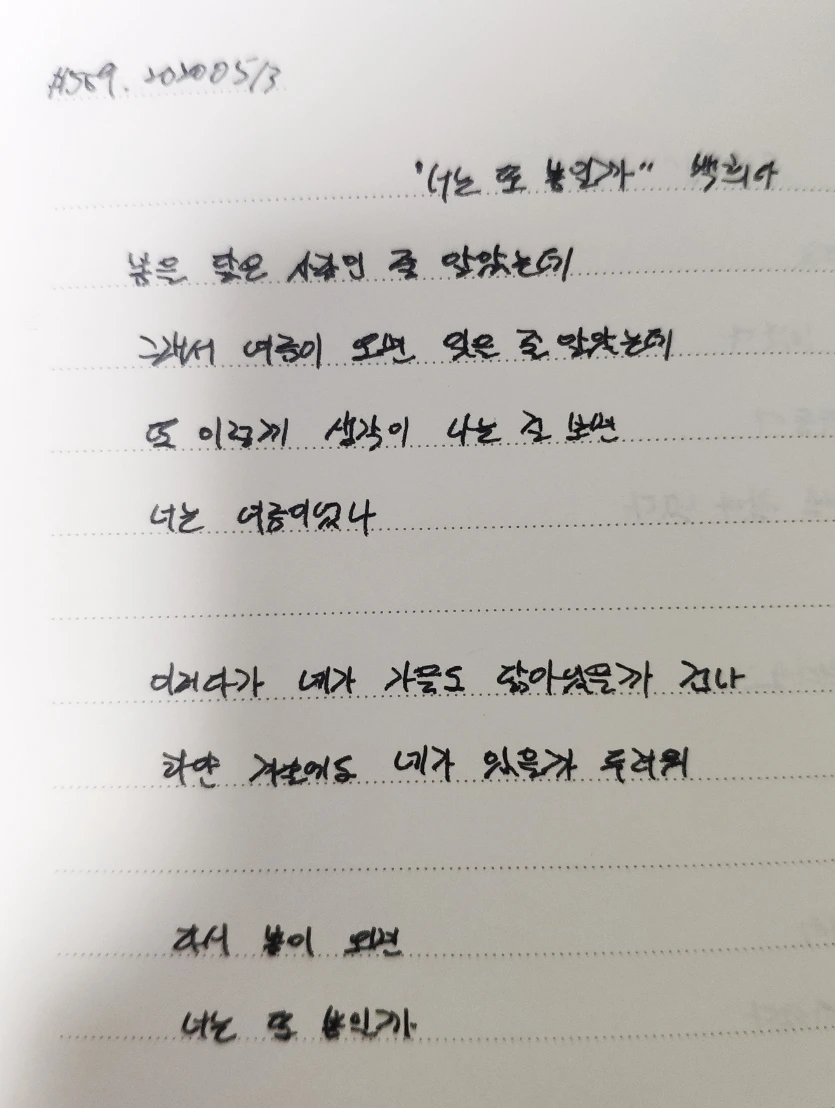 #569. 20200513
"너는 또 봄일까" 백희다
봄을 닮은 사람인 줄 알았는데
그래서 여름이 오면 잊을 줄 알았는데
또 이렇게 생각이 나는 걸 보면
너는 여름이었나
이러다가 네가 가을도 닮아있을까 겁나
하얀 겨울에도 네가 있을까 두려워
다시 봄이 오면
너는 또 봄일까.